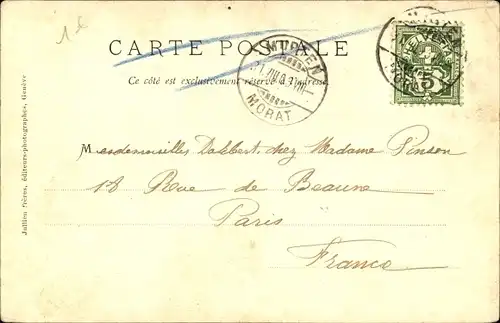 1 £
CARTE POSTALE
MURTEN
MORAT
Ce côté est exclusivement réservé à l'adresse.
5
Mesdemoiselles Dabbert, chez Madame Pinson
18 Rue de Beaune
Paris
France
Jullien frères, éditeurs-photographes, Genève